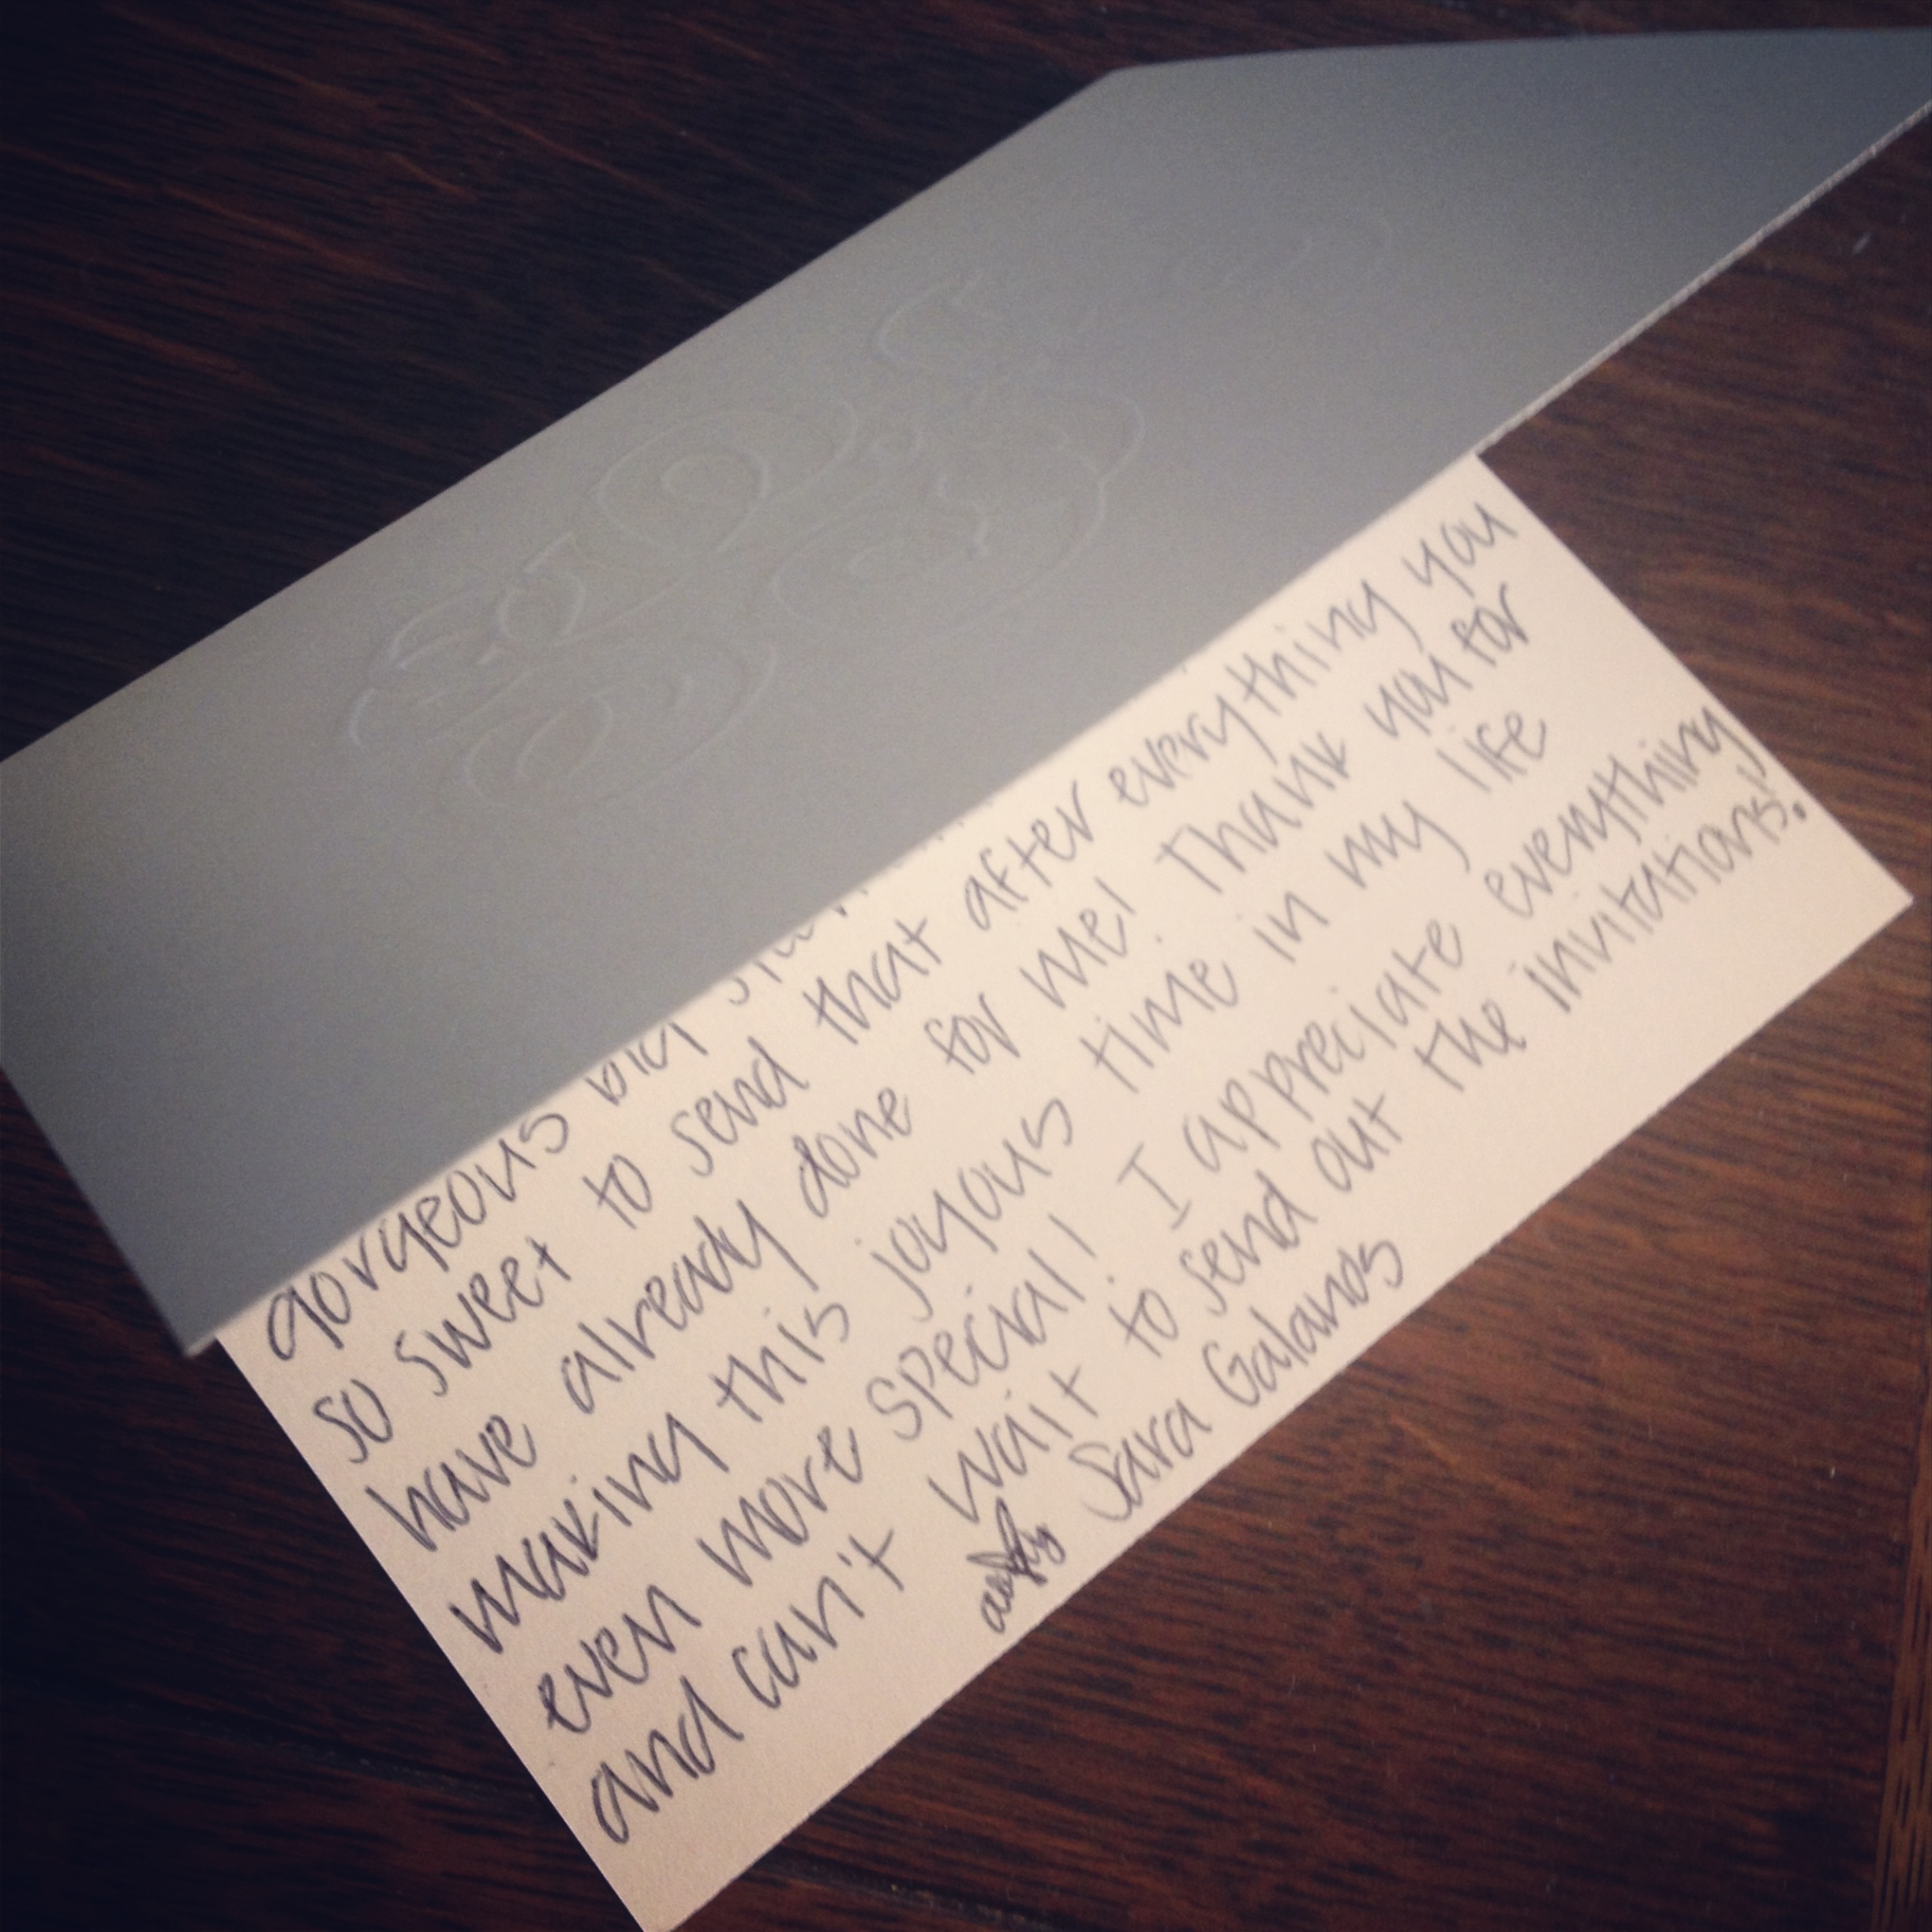 gorgeous
so sweet to send that after everything you
have already done for me! Thank you for
making this joyous time in my life
even more special! I appreciate everything
and can't wait to send out the invitations!
Sara Galanos